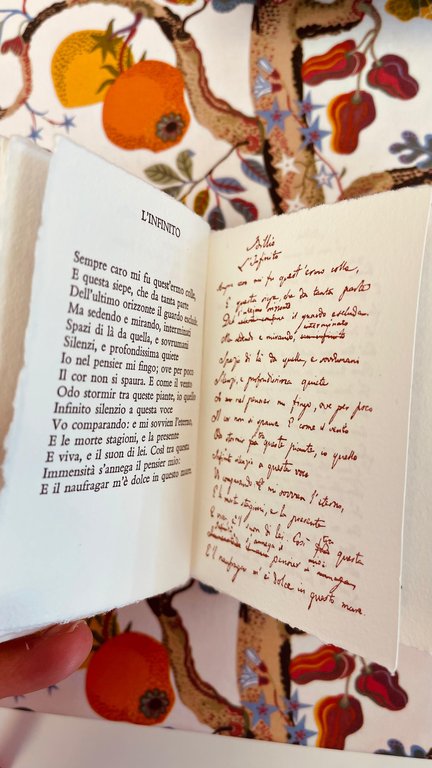 L'INFINITO
Sempre caro mi fu quest'ermo colle,
E questa siepe, che da tanta parte
Dell'ultimo orizzonte il guardo esclude.
Ma sedendo e mirando, interminati
Spazi di là da quella, e sovrumani
Silenzi, e profondissima quiete
Io nel pensier mi fingo; ove per poco
Il cor non si spaura. E come il vento
Odo stormir tra queste piante, io quello
Infinito silenzio a questa voce
Vo comparando: e mi sovvien l'eterno,
E le morte stagioni, e la presente
E viva, e il suon di lei. Così tra questa
Immensità s'annega il pensier mio:
E il naufragar m'è dolce in questo mare.
Idillio
L'Infinito
caro mi fu quest'ermo colle,
E questa siepe, che da tanta parte
l'ultimo orizzonte
Del il guardo esclude.
interminato
Ma sedendo e mirando,
Spazio di là da quella, e sovrumani
Silenzi, e profondissima quiete
Io nel pensier mi fingo, ove per poco
Il cor non si spaura. E come il vento
Odo stormir tra queste piante, io quello
Infinito silenzio a questa voce
Vo comparando. E mi sovvien l'eterno,
E le morte stagioni, e la presente
E viva, e 'l suon di lei. Così tra questa
pensier mio
E il naufragar m'è dolce in questo mare.